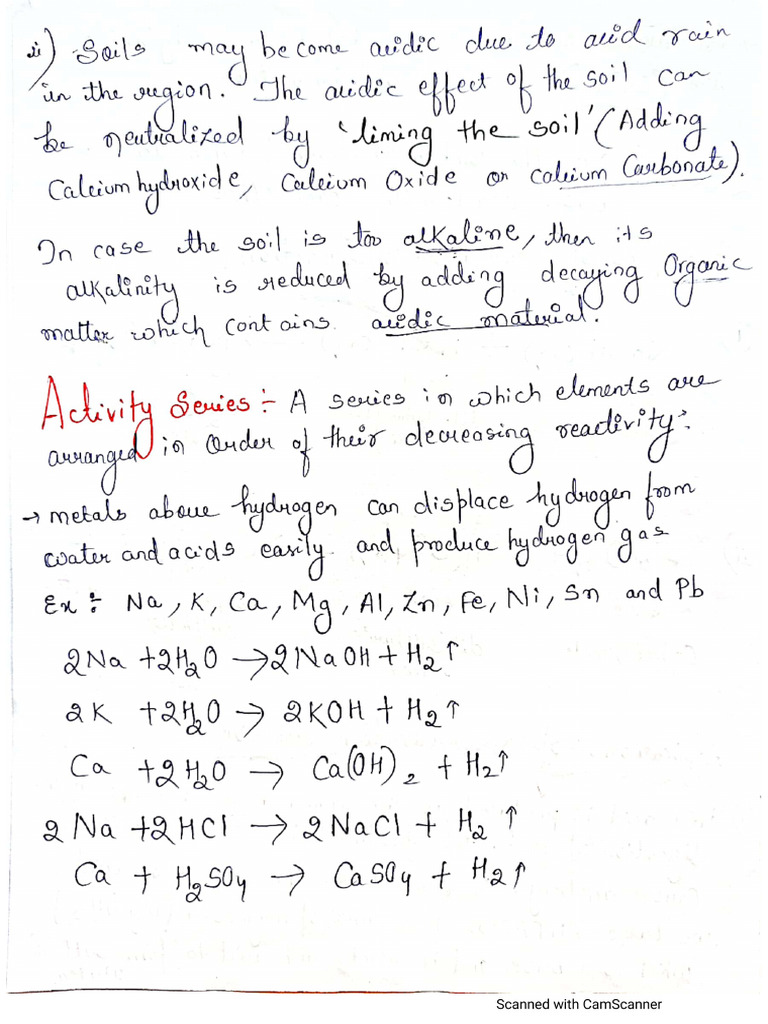 ii) Soils may become acidic due to acid rain
in the region. The acidic effect of the soil can
be neutralized by 'liming the soil' (Adding
Calcium hydroxide, Calcium Oxide or calcium Carbonate).
In case the soil is too alkaline, then its
alkalinity is reduced by adding decaying Organic
matter which contains acidic material.
Activity Series :- A series in which elements are
arranged in Order of their decreasing reactivity:
→ metals above hydrogen can displace hydrogen from
water and acids easily and produce hydrogen gas
Ex : Na, K, Ca, Mg, Al, Zn, Fe, Ni, Sn and Pb
2Na + 2H₂O → 2NaOH + H₂↑
2K + 2H₂O → 2KOH + H₂↑
Ca + 2H₂O → Ca(OH)₂ + H₂↑
2Na + 2HCl → 2NaCl + H₂ ↑
Ca + H₂SO₄ → CaSO₄ + H₂↑
Scanned with CamScanner